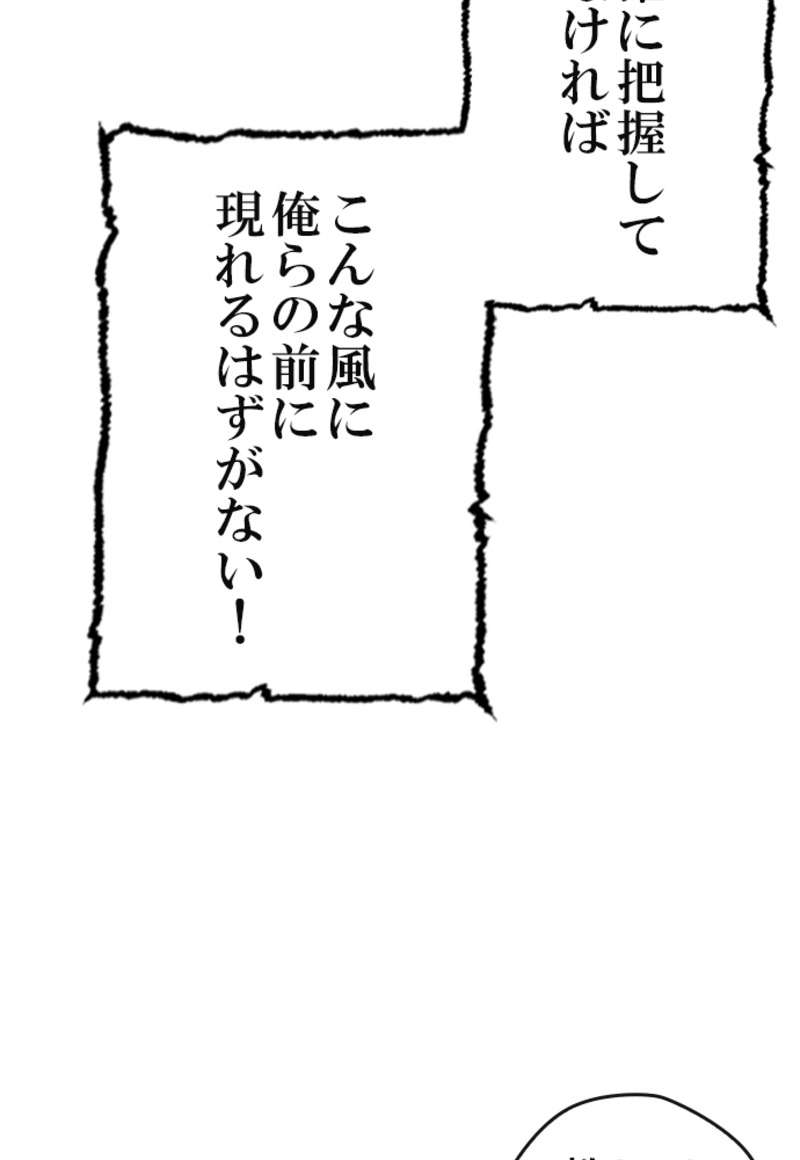 に把握して
ければ
こんな風に
俺らの前に
現れるはずがない！